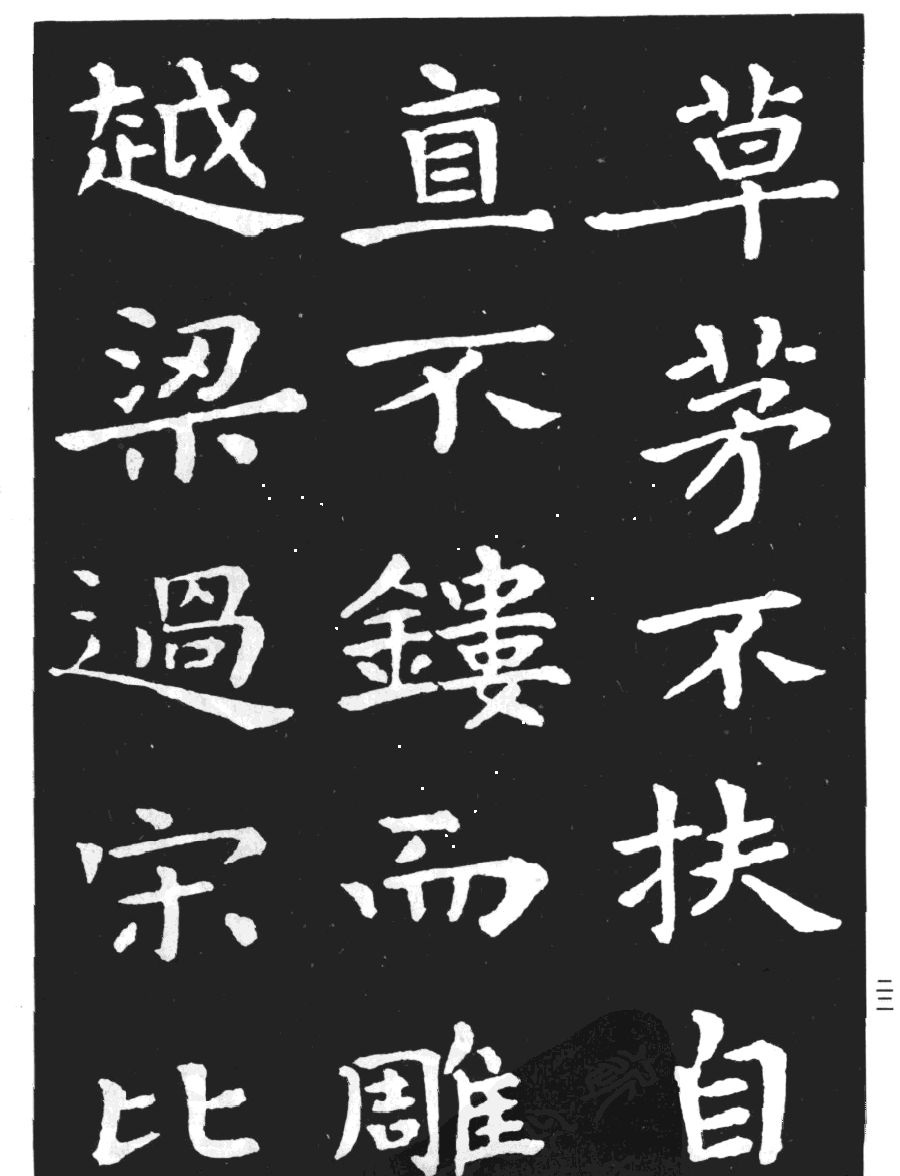 草茅不扶自
直不鏤而雕
越梁過宋比
三一